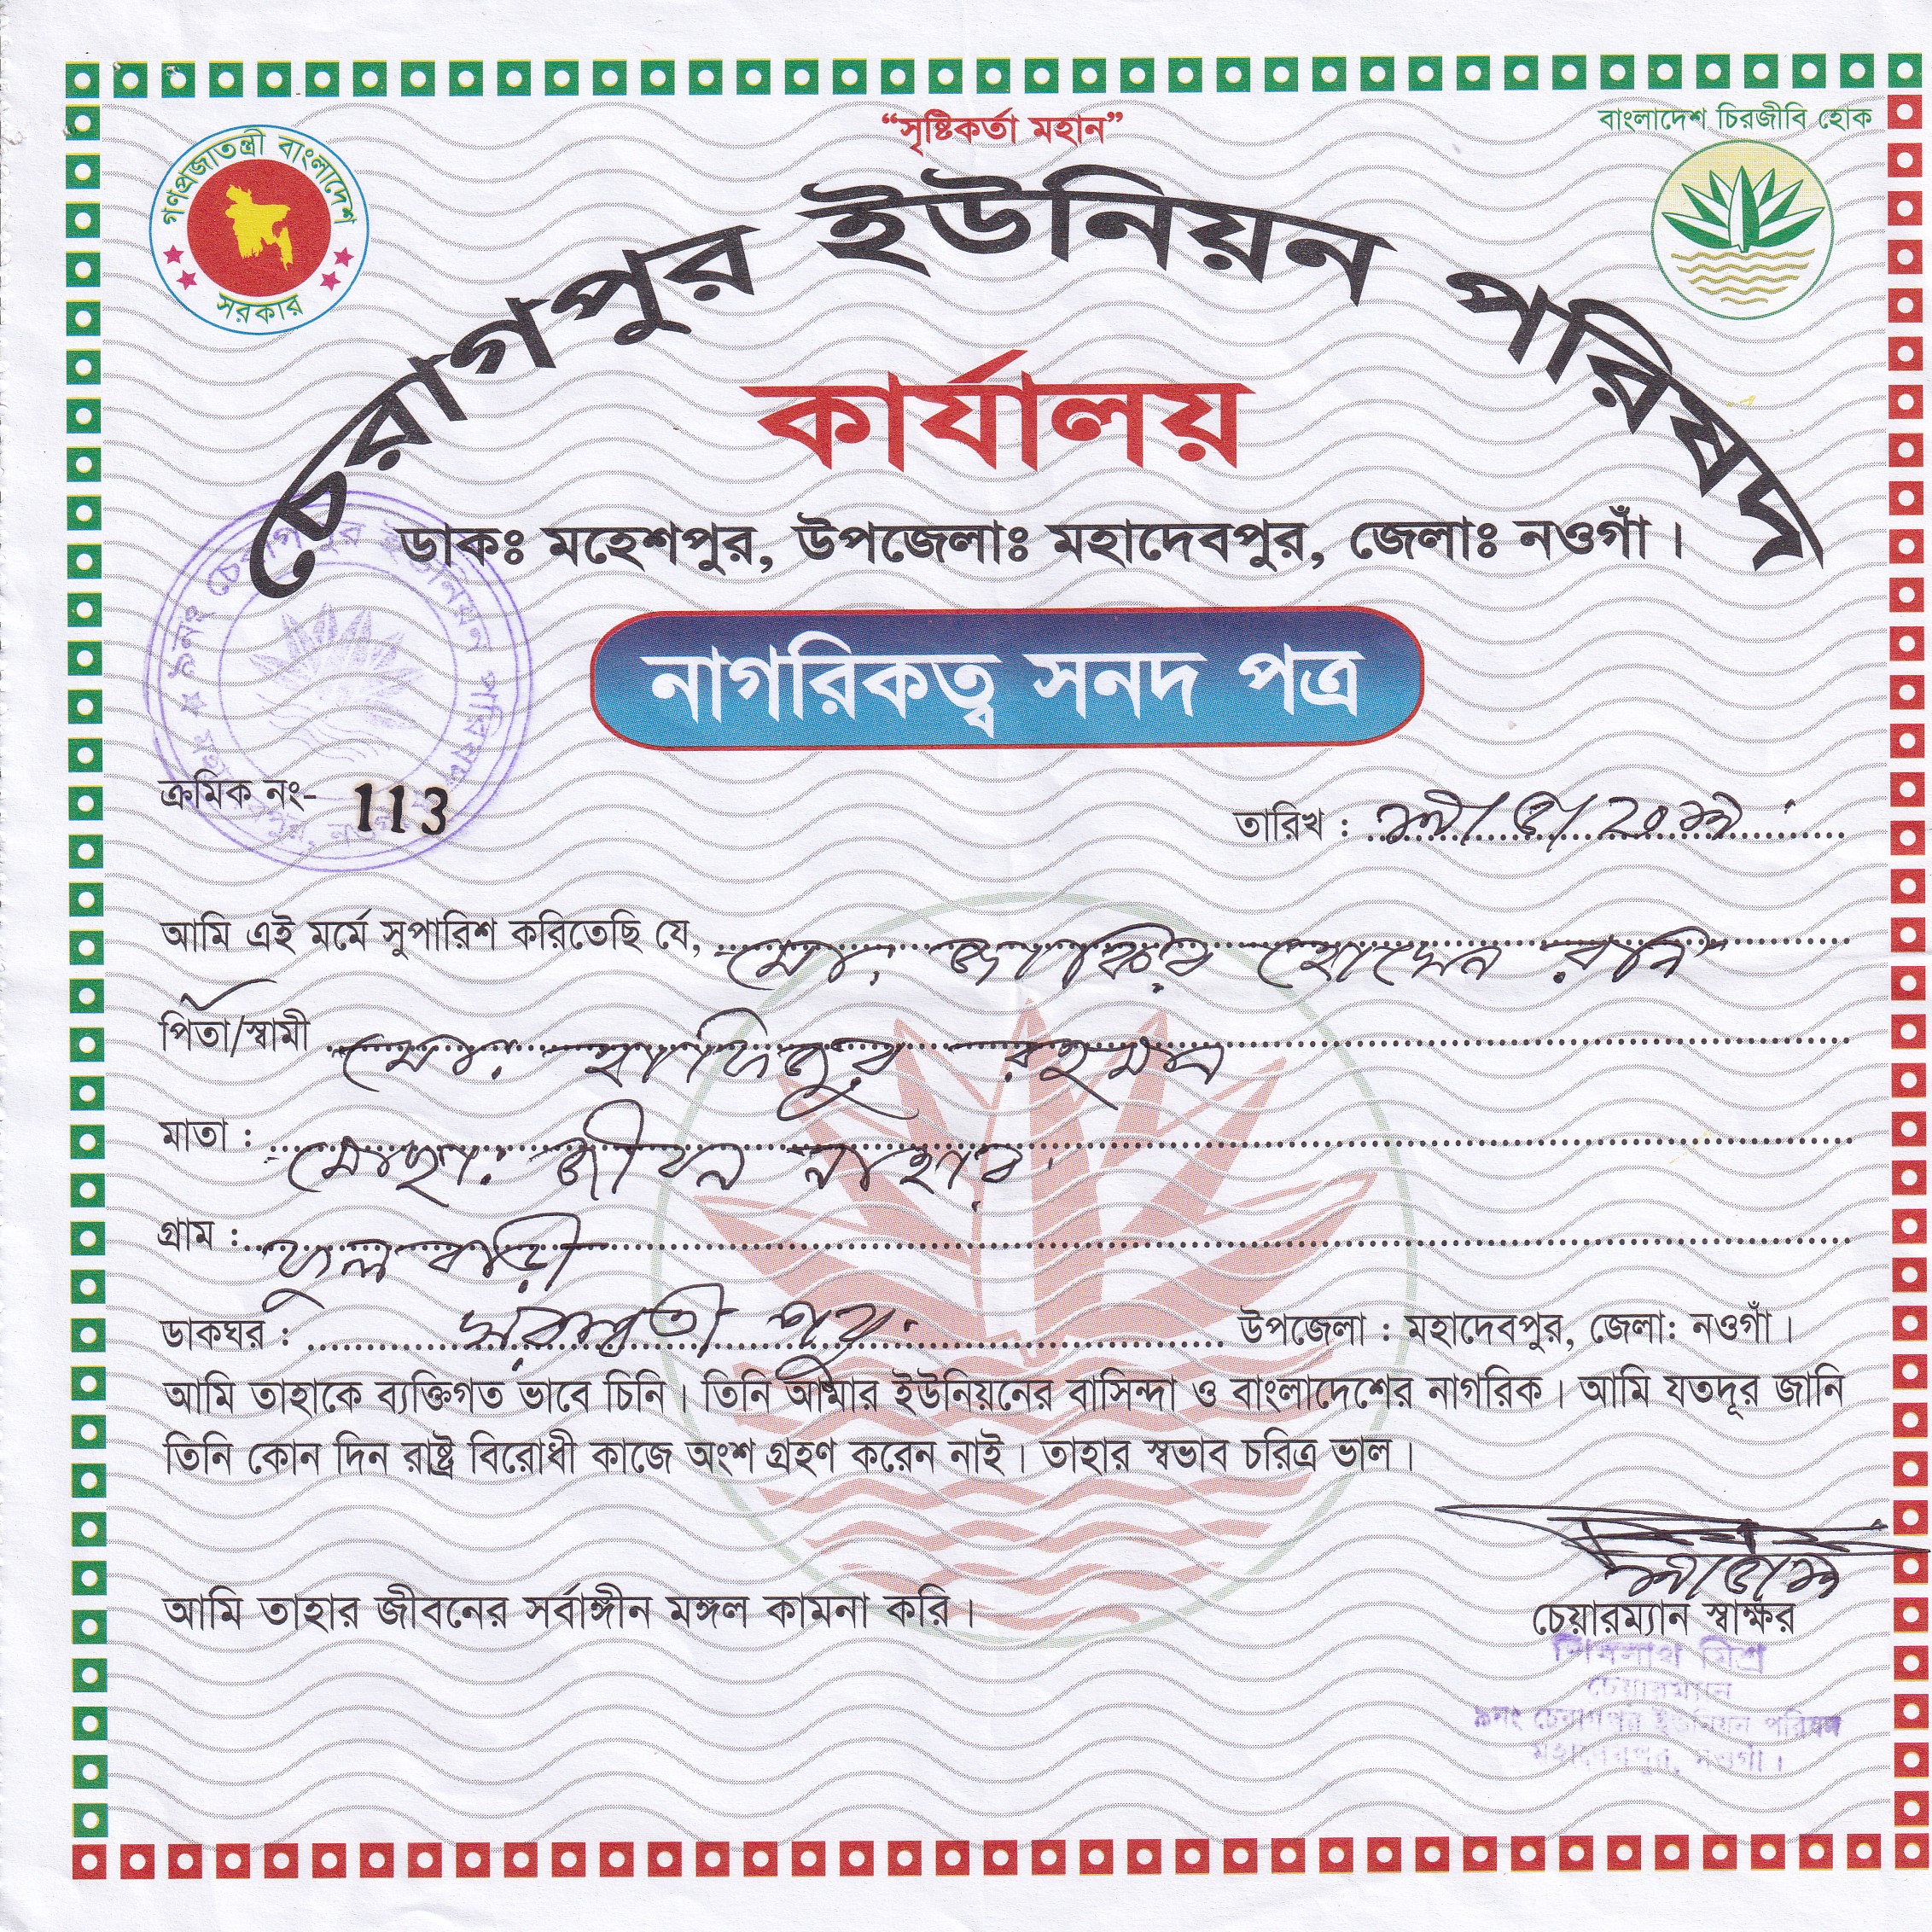 “সৃষ্টিকর্তা মহান”
বাংলাদেশ চিরজীবি হোক
গণপ্রজাতন্ত্রী বাংলাদেশ
সরকার
চেরাগপুর ইউনিয়ন পরিষদ
কার্যালয়
ডাকঃ মহেশপুর, উপজেলাঃ মহাদেবপুর, জেলাঃ নওগাঁ।
নাগরিকত্ব সনদ পত্র
৯নং চেরাগপুর ইউনিয়ন পরিষদ
ক্রমিক নং- 113
তারিখ :
আমি এই মর্মে সুপারিশ করিতেছি যে, মো. জাকির হোসেন রনি
পিতা/স্বামী মো. হাফিজুর রহমান
মাতা : মোছা. জীবন নাহার
গ্রাম : ফুলবাড়ী
ডাকঘর : সরস্বতী পুর উপজেলা : মহাদেবপুর, জেলা: নওগাঁ।
আমি তাহাকে ব্যক্তিগত ভাবে চিনি। তিনি আমার ইউনিয়নের বাসিন্দা ও বাংলাদেশের নাগরিক। আমি যতদূর জানি
তিনি কোন দিন রাষ্ট্র বিরোধী কাজে অংশ গ্রহণ করেন নাই। তাহার স্বভাব চরিত্র ভাল।
আমি তাহার জীবনের সর্বাঙ্গীন মঙ্গল কামনা করি।
চেয়ারম্যান স্বাক্ষর
শিবনাথ মিশ্র
চেয়ারম্যান
৯নং চেরাগপুর ইউনিয়ন পরিষদ
মহাদেবপুর, নওগাঁ।